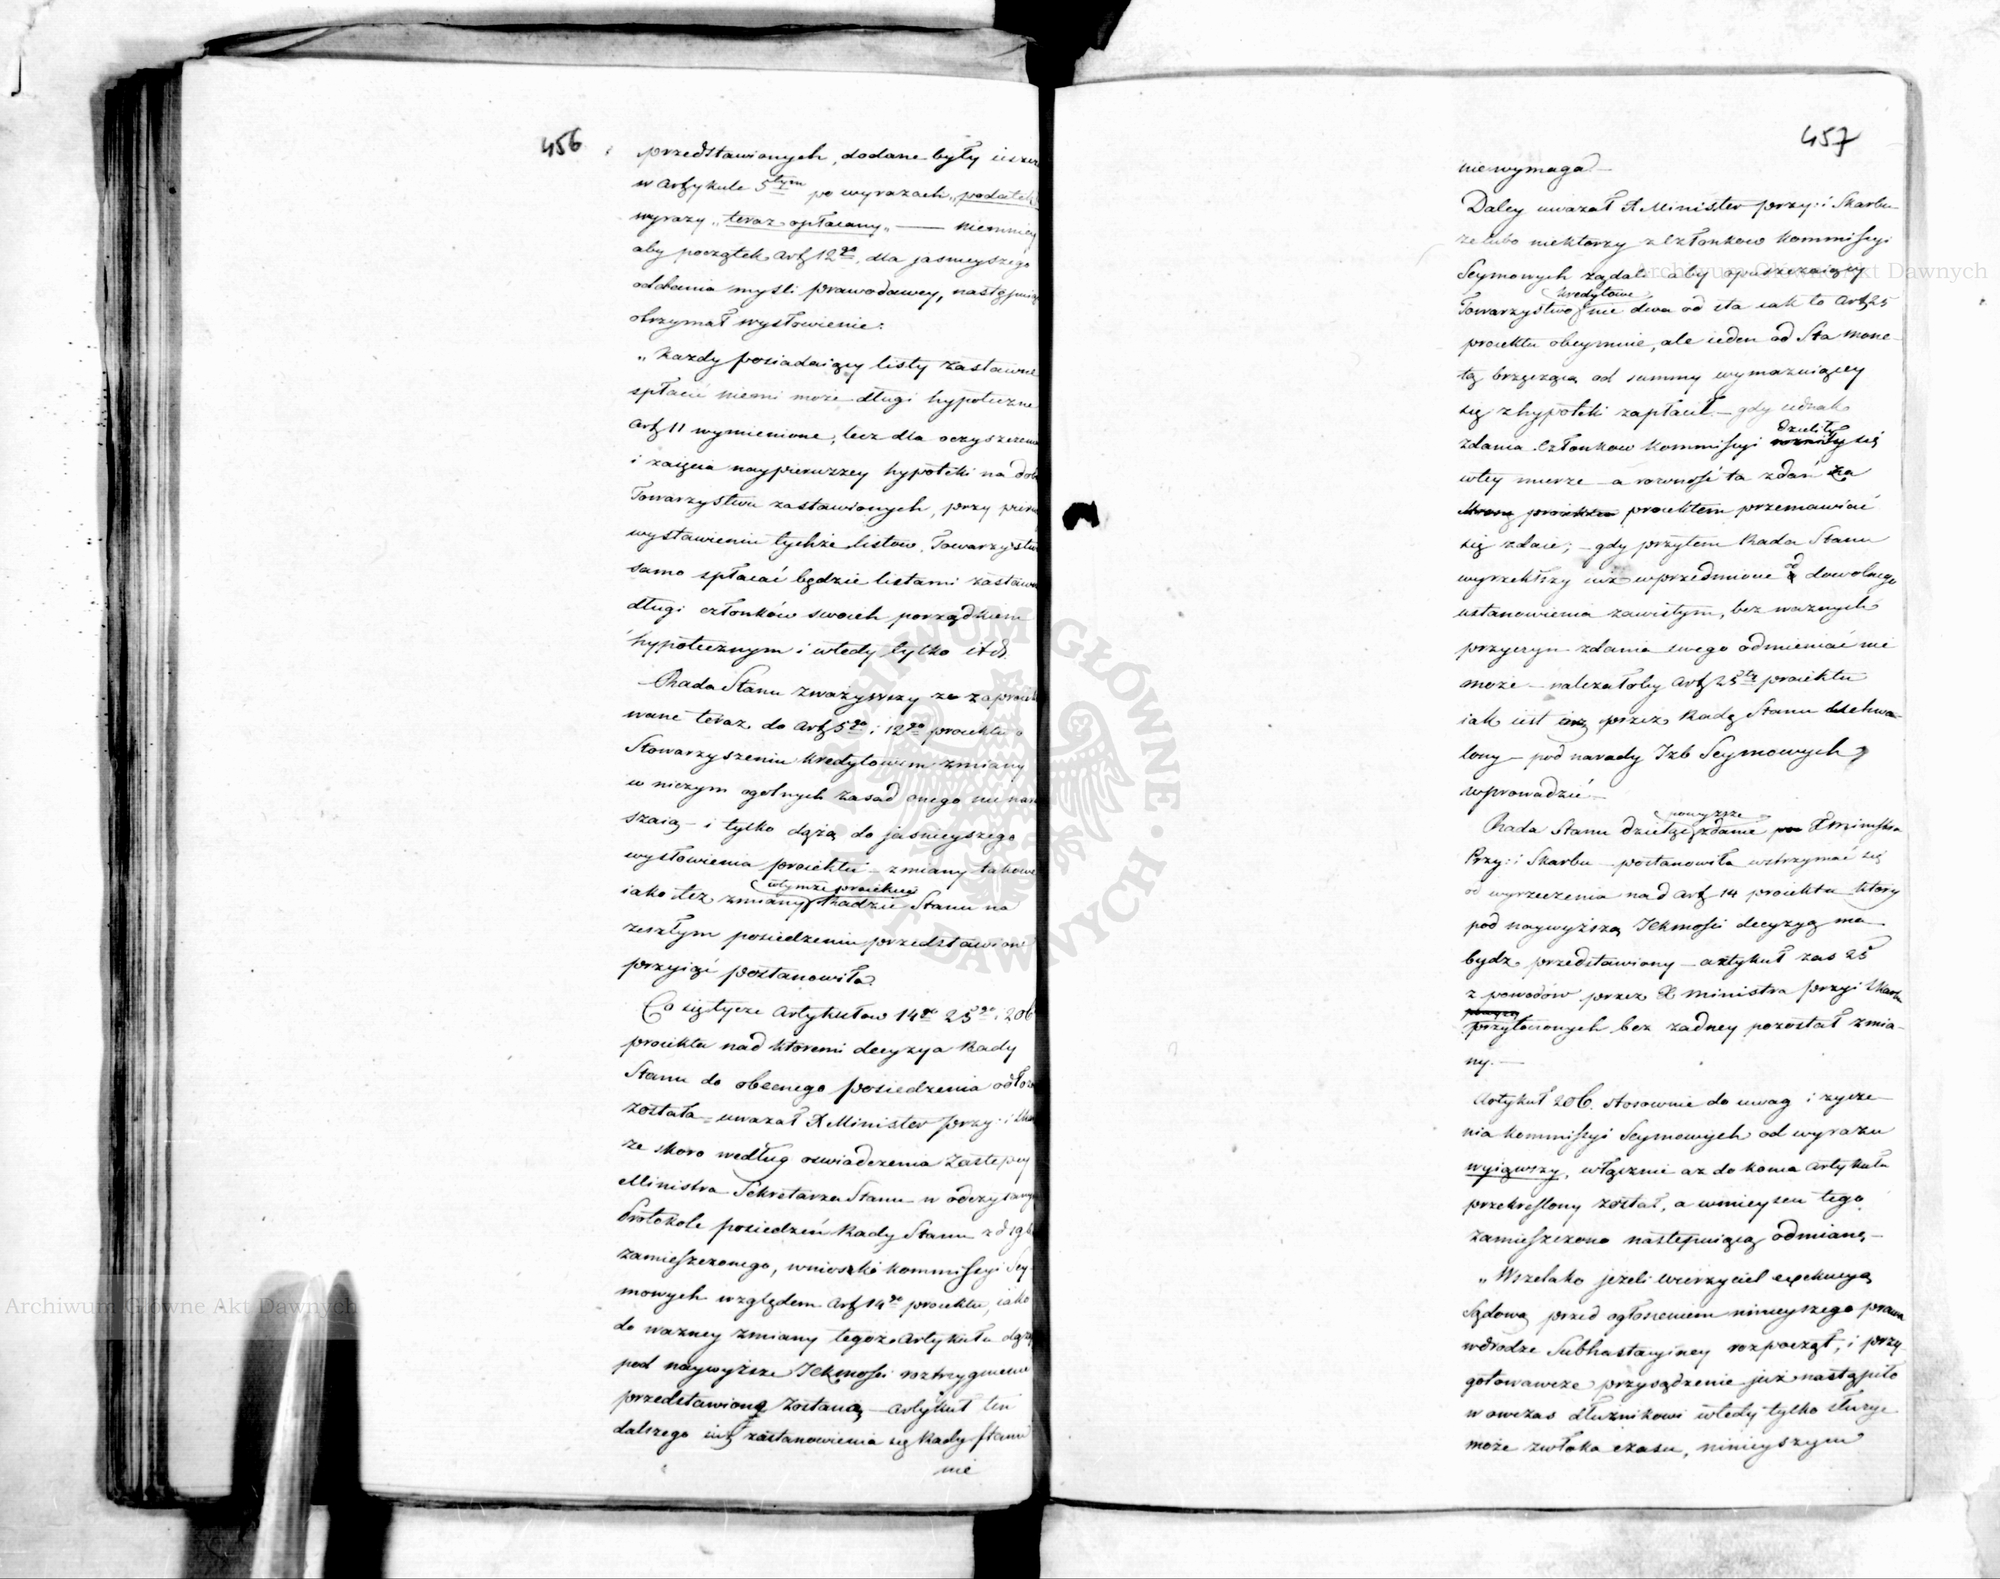 456
przedstawionych, dodane były ieszcze
w artykule 5tym po wyrazach „podatek
wyrazy „teraz opłacany„ — niemniej
aby początek art 12go, dla jasnieyszego
oddania myśli prawodawcy, następuiące
otrzymał wysłowienie:
„Każdy posiadaiący listy zastawne
spłacić niemi może długi hypoteczne
art 11 wymienione, lecz dla oczyszczenia
i zaięcia naypierwszey hypoteki na dob
Towarzystwu zastawionych, przy pierw
wystawieniu tychże listow, Towarzystwo
samo spłacać będzie listami zastaw
długi członków swoich porządkiem
hypotecznym i wtedy tylko itd.
Rada Stanu zważywszy ze zaproiekto
wane teraz do art 5go i 12go proiektu o
Stowarzyszeniu kredytowem zmiany
w niczym ogolnych zasad onego nie naru
szaią — i tylko dążą do jasnieyszego
wysłowienia proiektu — zmiany takowe
wtymże proiekcie
iako też zmiany Radzie Stanu na
zeszłym posiedzeniu przedstawione
przyiąć postanowiła.
Co siętycze artykułow 14go 25go i 206
proiektu nad ktoremi decyzya Rady
Stanu do obecnego posiedzenia odłożo
została — uważał JX Minister przy: i Skar
ze skoro według oswiadczenia Zastępcy
Ministra Sekretarza Stanu w odczytanym
Protokole posiedzeń Rady Stanu z d 19
zamieszczonego, wnioski kommissyi Sey
mowych względem art 14go proiektu, iako
do ważney zmiany tegoż artykułu dążą
pod naywyższe JCKmości roztrzygnienie
przedstawione zostaną — artykuł ten
dalszego iuż zastanowienia się Rady Stanu
nie
457
niewymaga —
Daley uważał JX Minister przy: i Skarbu
ze lubo niektorzy z Członkow kommissyi
Seymowych ządali aby opuszczaiący
kredytowe
Towarzystwo nie dwa od sta iak to art 25
proiektu obeymuie, ale ieden od Sta mone
tą brzęczącą od summy wymazuiącey
się z hypoteki zapłacił — gdy iednak
dzieliły
zdania Członkow kommissyi się
wtey mierze — a rowność ta zdań za
proiektem przemawiać
się zdaie; — gdy przytem Rada Stanu
od
wyrzekłszy iuż wprzedmiocie dowolnego
ustanowienia zawisłym, bez ważnych
przyczyn zdania swego odmieniać nie
może — należałoby art 25ty proiektu
iak iest przez Radę Stanu uchwa
lony — pod narady Izb Seymowych
wprowadzić —
powyższe
Rada Stanu dzieląc zdanie JX Ministra
Przy: i Skarbu — postanowiła wstrzymać się
od wyrzeczenia nad art 14 proiektu ktory
pod naywyższą JCKmości decyzyą ma
bydz przedstawiony — artykuł zas 25
z powodów przez JX Ministra przy: i Skarbu
przytoczonych bez żadney pozostał zmia
ny. —
Artykuł 206. stosownie do uwag i życze
nia kommissyi Seymowych od wyrazu
wyiąwszy, włącznie aż do końca artykułu
przekreslony został, a wmieyscu tego
zamieszczono następuiącą odmianę —
„Wszelako jeżeli wierzyciel exekucyą
Sądową przed ogłoszeniem ninieyszego prawa
wdrodze Subhastacyiney rozpoczął, i przy
gotowawcze przysądzenie już nastąpiło
w owczas dłużnikowi wtedy tylko służyć
może zwłoka czasu, ninieyszym
Archiwum Główne Akt Dawnych
Archiwum Główne Akt Dawnych
ARCHIWUM GŁÓWNE AKT DAWNYCH